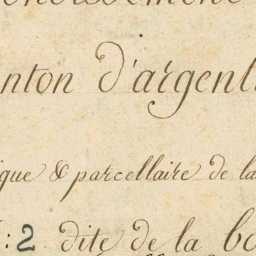 nton d'argent
ique & parcellaire de la
: 2 dite de la bo